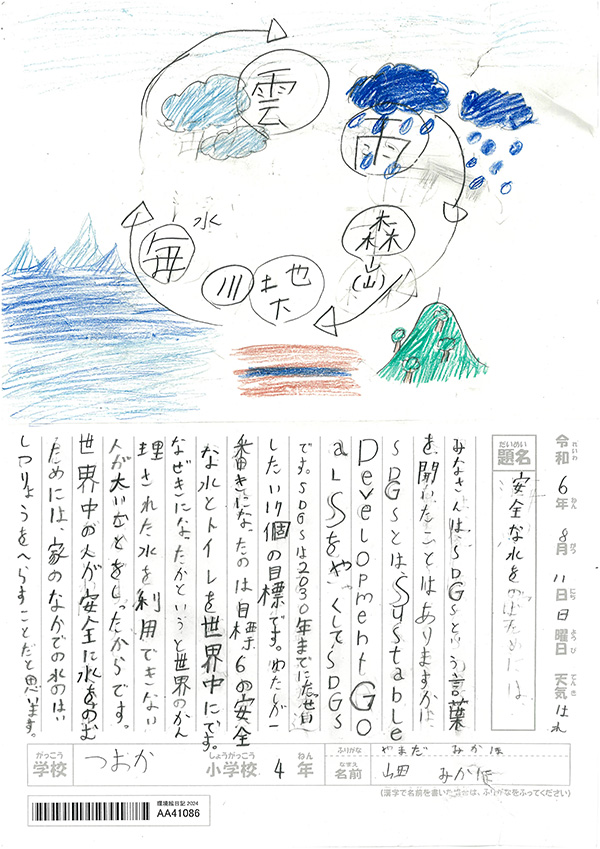 雲
雨
森
(山)
地
川
毎
水
令和 6年 8月 11日 日曜日 天気 はれ
れいわ ねん がつ にち ようび てんき
だいめい
題名
安全な水をのむためには
みなさんは、SDGsという言葉
を、聞いたことはありますか。
SDGsとは、Systable
Development Go
alsをやくしてSDGs
です。SDGsは2030年までに達
したい17個の目標です。わたしが一
番きになったのは目標6の安全
な水とトイレを世界中にです。
なぜきになったかというと世界のかん
理された水を利用できない
人が大いことをしったからです。
世界中の人が安全に水をのむ
ためには、家のなかでの水のはい
しつりょうをへらすことだと思います。
がっこう
学校
つおか
しょうがっこう
小学校
4
ねん
年
ふりがな
やまだ みかほ
なまえ
名前
山田 みかほ
(漢字で名前を書いた場合は、ふりがなをふってください)
環境絵日記2024
AA41086